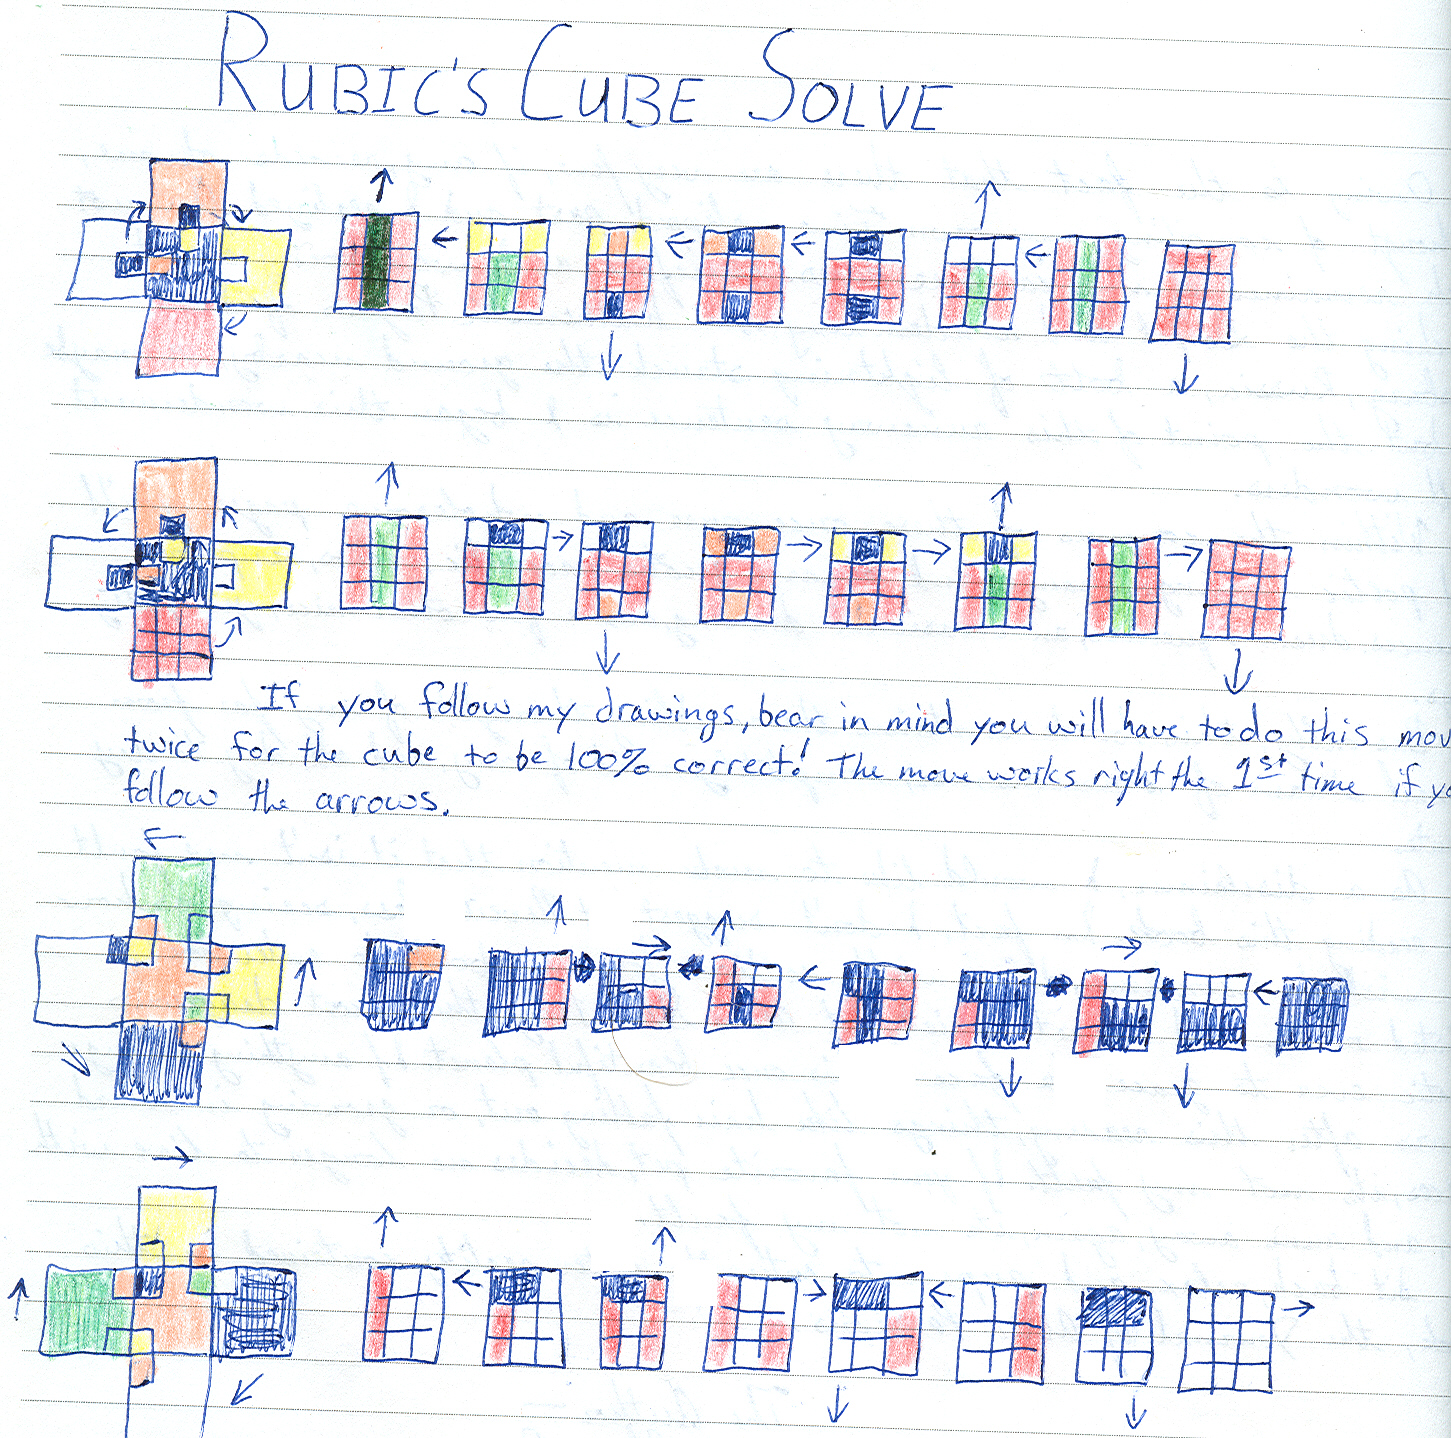 RUBIC'S CUBE SOLVE
If you follow my drawings, bear in mind you will have to do this mov
twice for the cube to be 100% correct! The move works right the 1st time if yo
follow the arrows.